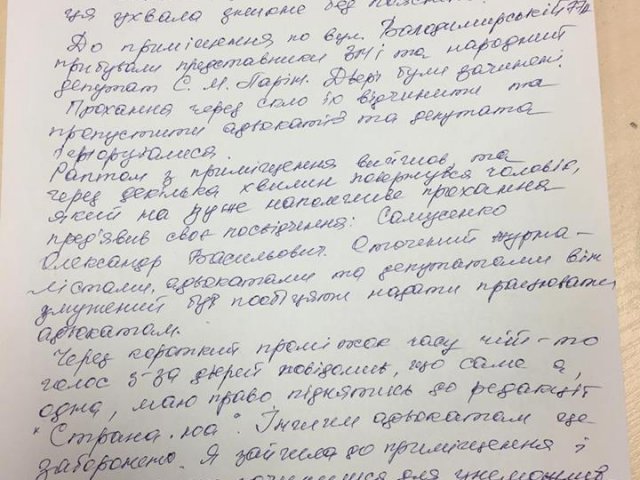 ця ухвала
До приміщення по вул. Володимирській,
прибували представники ЗМІ та народний
депутат С. М. Ларін. Двері були зачинені.
Прохання через скло їх відчинити та
пропустити адвокатів та депутата
ігнорувалися.
Раптом з приміщення вийшов та
через декілька хвилин повернувся чоловік,
який на дуже наполегливе прохання
пред'явив своє посвідчення: Самусенко
Олександр Васильович. Оточений журна-
лістами, адвокатами та депутатами він
змушений був пообіцяти надати працювати
адвокатам.
Через короткий проміжок часу чий-то
голос з-за дверей повідомив, що саме я,
одна, маю право піднятись до редакції
"Страна.юа". Іншим адвокатам це
заборонено. Я зайшла до приміщення і
для